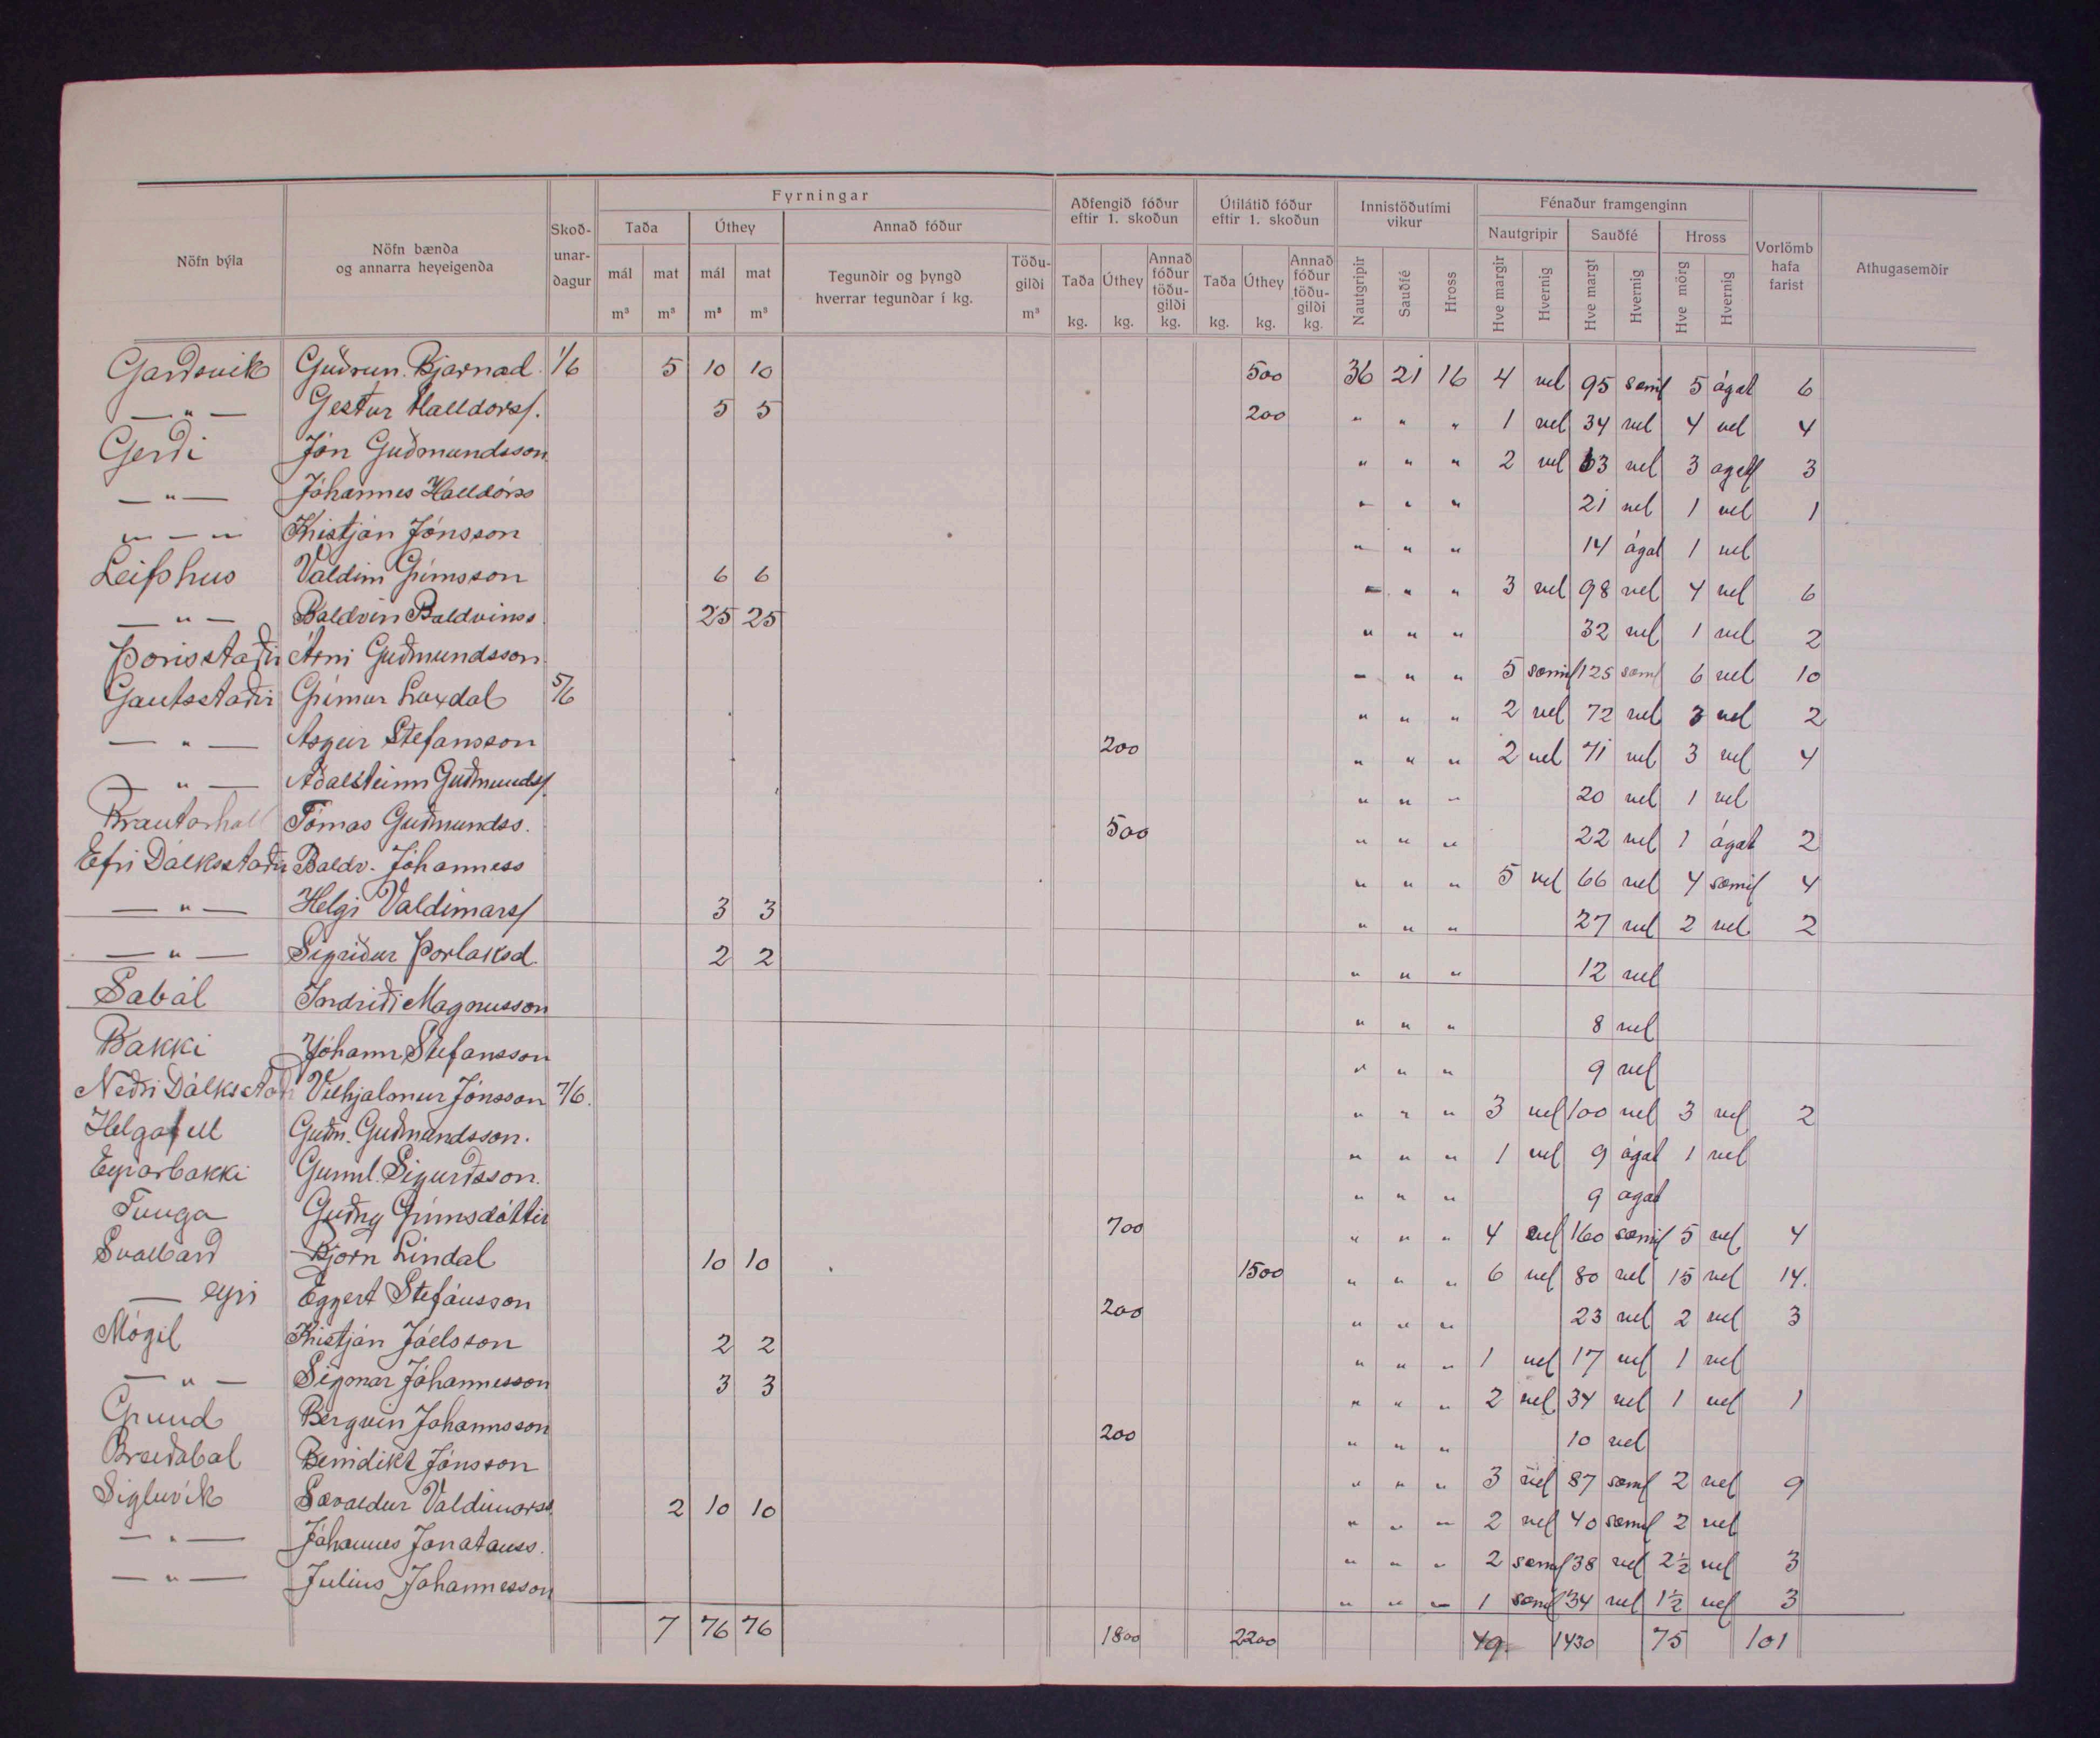 Fyrningar
Aðfengið fóður eftir 1. skoðun
Útilátið fóður eftir 1. skoðun
Innistöðutími vikur
Fénaður framgenginn
Nöfn býla
Nöfn bænda og annarra heyeigenda
Skoðunardagur
Taða
Úthey
Annað fóður
Nautgripir
Sauðfé
Hross
Vorlömb hafa farist
Athugasemdir
mál m³ mat m³ mál m³ mat m³ Tegundir og þyngd hverrar tegundar í kg. Töðugildi m³
Taða kg. Úthey kg. Annað fóður töðugildi kg. Taða kg. Úthey kg. Annað fóður töðugildi kg.
Nautgripir Sauðfé Hross Hve margir Hvernig Hve margt Hvernig Hve mörg Hvernig
Garðsvik Guðrun Bjarnad. 1/6 5 10 10 500 36 21 16 4 vel 95 sæmil 5 ágæt 6
— " — Gestur Halldorss. 5 5 200 " " " 1 vel 34 vel 4 vel 4
Gerði Jón Guðmundsson " " " 2 vel 63 vel 3 agæt 3
— " — Jóhannes Halldórss " " " 21 vel 1 vel 1
" — " Kristján Jónsson " " " 14 ágæt 1 vel
Leifshus Valdim Grímsson 6 6 " " " 3 vel 98 vel 4 vel 6
— " — Baldvin Baldvinss. 25 25 " " " 32 vel 1 vel 2
Þorisstaðir Árni Guðmundsson " " " 5 sæmil 125 sæml 6 vel 10
Gautsstaðir Grímur Laxdal 5/6 " " " 2 vel 72 vel 3 vel 2
— " — Asgeir Stefansson 200 " " " 2 vel 71 vel 3 vel 4
— " — Aðalsteinn Guðmundss. " " " 20 vel 1 vel
Brautarholl Tómas Guðmundss. 500 " " " 22 vel 1 ágæt 2
Efri Dálksstaðir Baldv. Jóhanness " " " 5 vel 66 vel 4 sæmil 4
— " — Helgi Valdimarss 3 3 " " " 27 vel 2 vel 2
— " — Sigriður Þorlaksd. 2 2 " " " 12 vel
Sabál Indriði Magnusson " " " 8 vel
Bakki Jóhann Stefansson " " " 9 vel
Neðri Dálksstaði Vilhjalmur Jónsson 7/6. " " " 3 vel 100 vel 3 vel 2
Helgafell Guðm. Guðmundsson. " " " 1 vel 9 ágæt 1 vel
Eyrarbakki Gunnl. Sigurðsson. " " " 9 agæt
Tunga Guðny Grímsdóttir 700 " " " 4 vel 160 sæmil 5 vel 4
Svalbarð Bjorn Líndal 10 10 1500 " " " 6 vel 80 vel 15 vel 14.
— eyri Eggert Stefánsson 200 " " " 23 vel 2 vel 3
Mógil Kristján Jóelsson 2 2 " " " 1 vel 17 vel 1 vel
— " — Sigmar Jóhannesson 3 3 " " " 2 vel 34 vel 1 vel 1
Grund Bergvin Johannsson 200 " " " 10 vel
Breiðabal Benidikt Jónsson " " " 3 vel 87 sæml 2 vel 9
Sigluvík Sævaldur Valdimarss. 2 10 10 " " " 2 vel 40 sæmil 2 vel
— " — Jóhannes Jonatanss. " " " 2 sæml 38 vel 2½ vel 3
— " — Julius Johannesson " " " 1 sæmil 34 vel 1½ vel 3
7 76 76 1800 2200 49. 1430 75 101